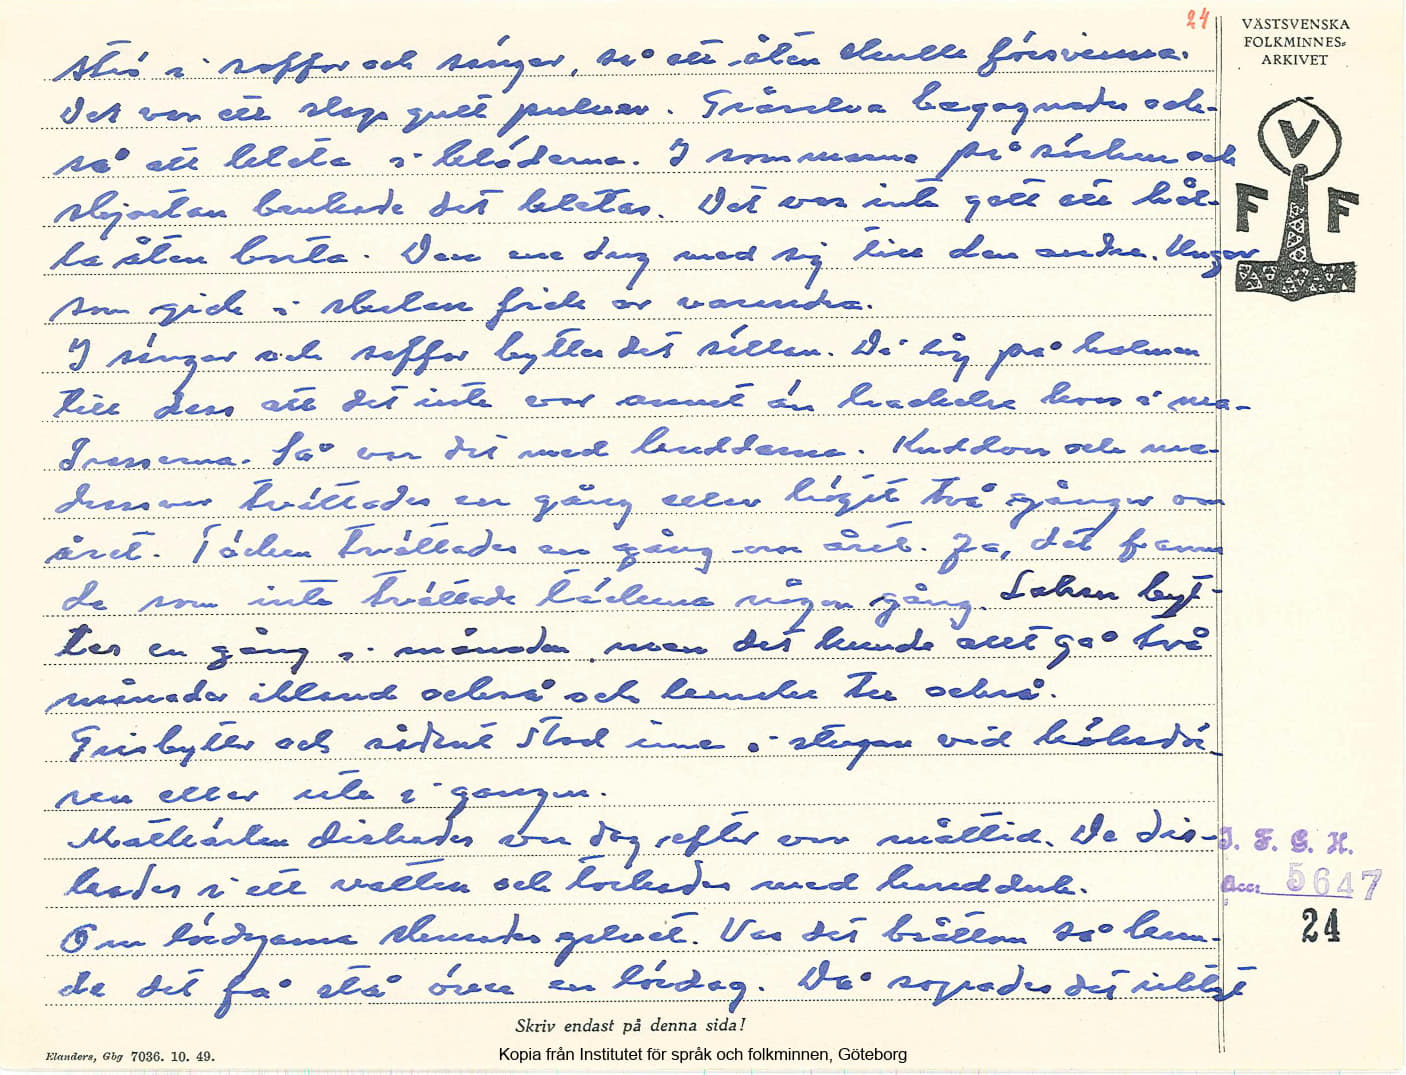 24
VÄSTSVENSKA
FOLKMINNES-
ARKIVET
V
F F
strö i soffor och sängar, så att åten skulle försvinna.
Det var ett slags gult pulver. Gråselva begagnades ock-
så att leta i kläderna. I sömmarna på särken och
skjortan brukade det letas. Det var inte gott att hål-
la åten borta. Den ene drog med sig till den andra. Ungar
som gick i skolan fick av varandra.
I sängar och soffor byttes det sällan. De låg på halmen
till dess att det inte var annat än hackelse kvar i ma-
drasserna. Så var det med kuddarna. Kuddvar och ma-
drassvar tvättades en gång eller högst två gånger om
året. Täcken tvättades en gång om året. Ja, det fanns
de som inte tvättade täckena någon gång. Lakan byt-
tes en gång i månaden, men det kunde allt gå två
månader ibland också och kanske tre också.
Grisbyttor och sådant stod inne i stugan vid köksdör-
ren eller ute i gången.
Matkärlen diskades var dag efter var måltid. De dis-
kades i ett vatten och torkades med handduk.
Om lördagarna skurades golvet. Var det bråttom så kun-
de det få stå över en lördag. Då sopades det
I. F. G. H.
Acc: 5647
24
Skriv endast på denna sida!
Elanders, Gbg 7036. 10. 49.
Kopia från Institutet för språk och folkminnen, Göteborg